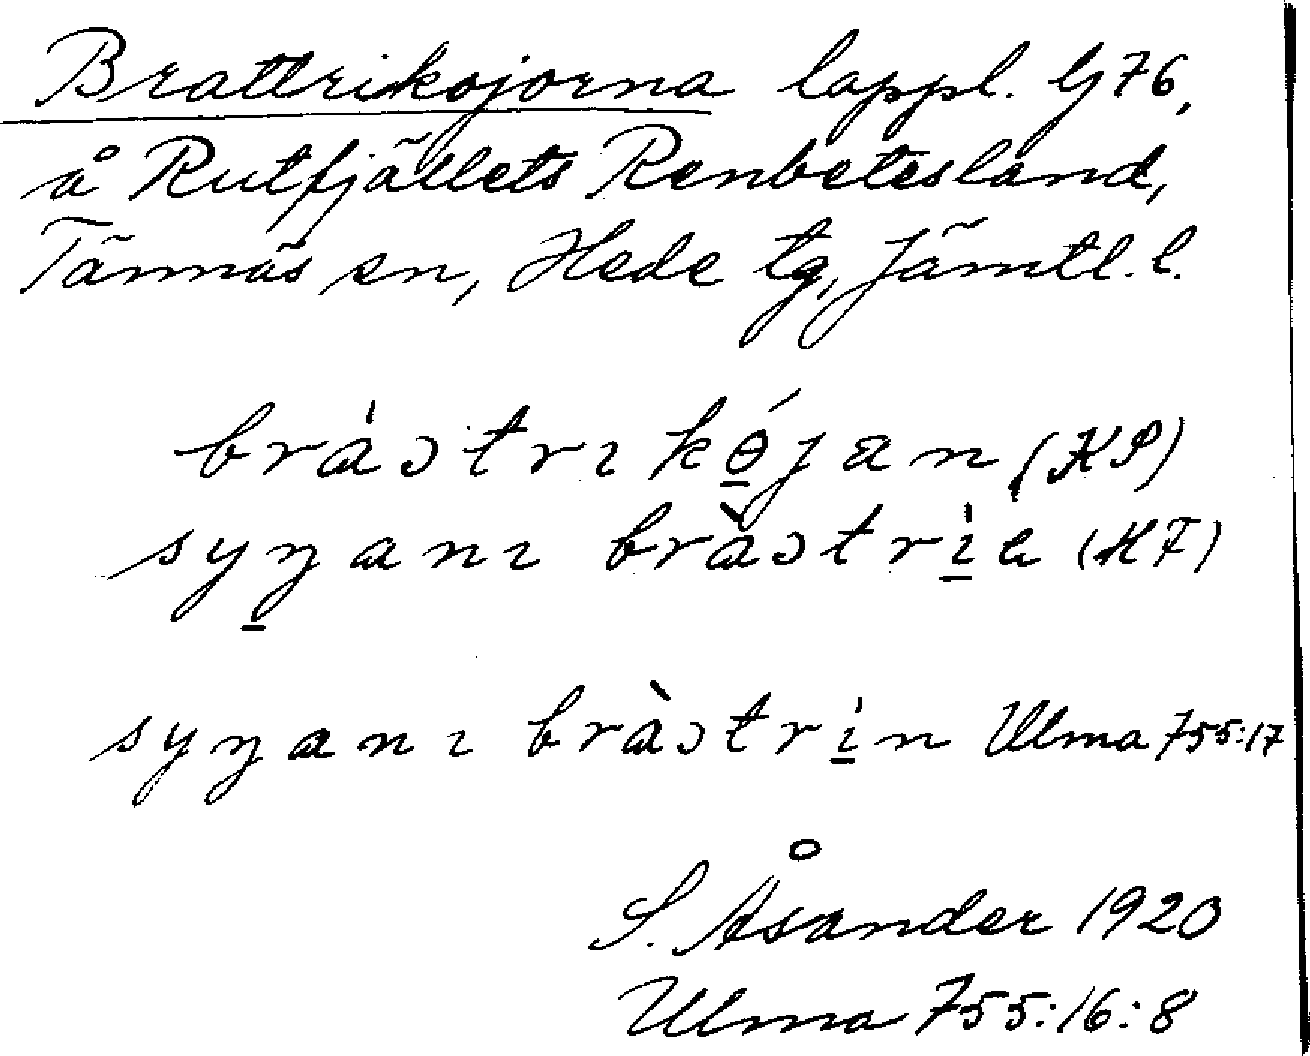 Brattrikojorna lappl. G76,
å Rutfjällets Renbetesland,
Tännäs sn, Hede tg, Jämtl. l.
bràɔtrıkǿjan (KP)
syȷanı bràɔtrìa (KF)
syȷanı bràɔtrìn Ulma 755:17
S. Åsander 1920
Ulma 755:16:8